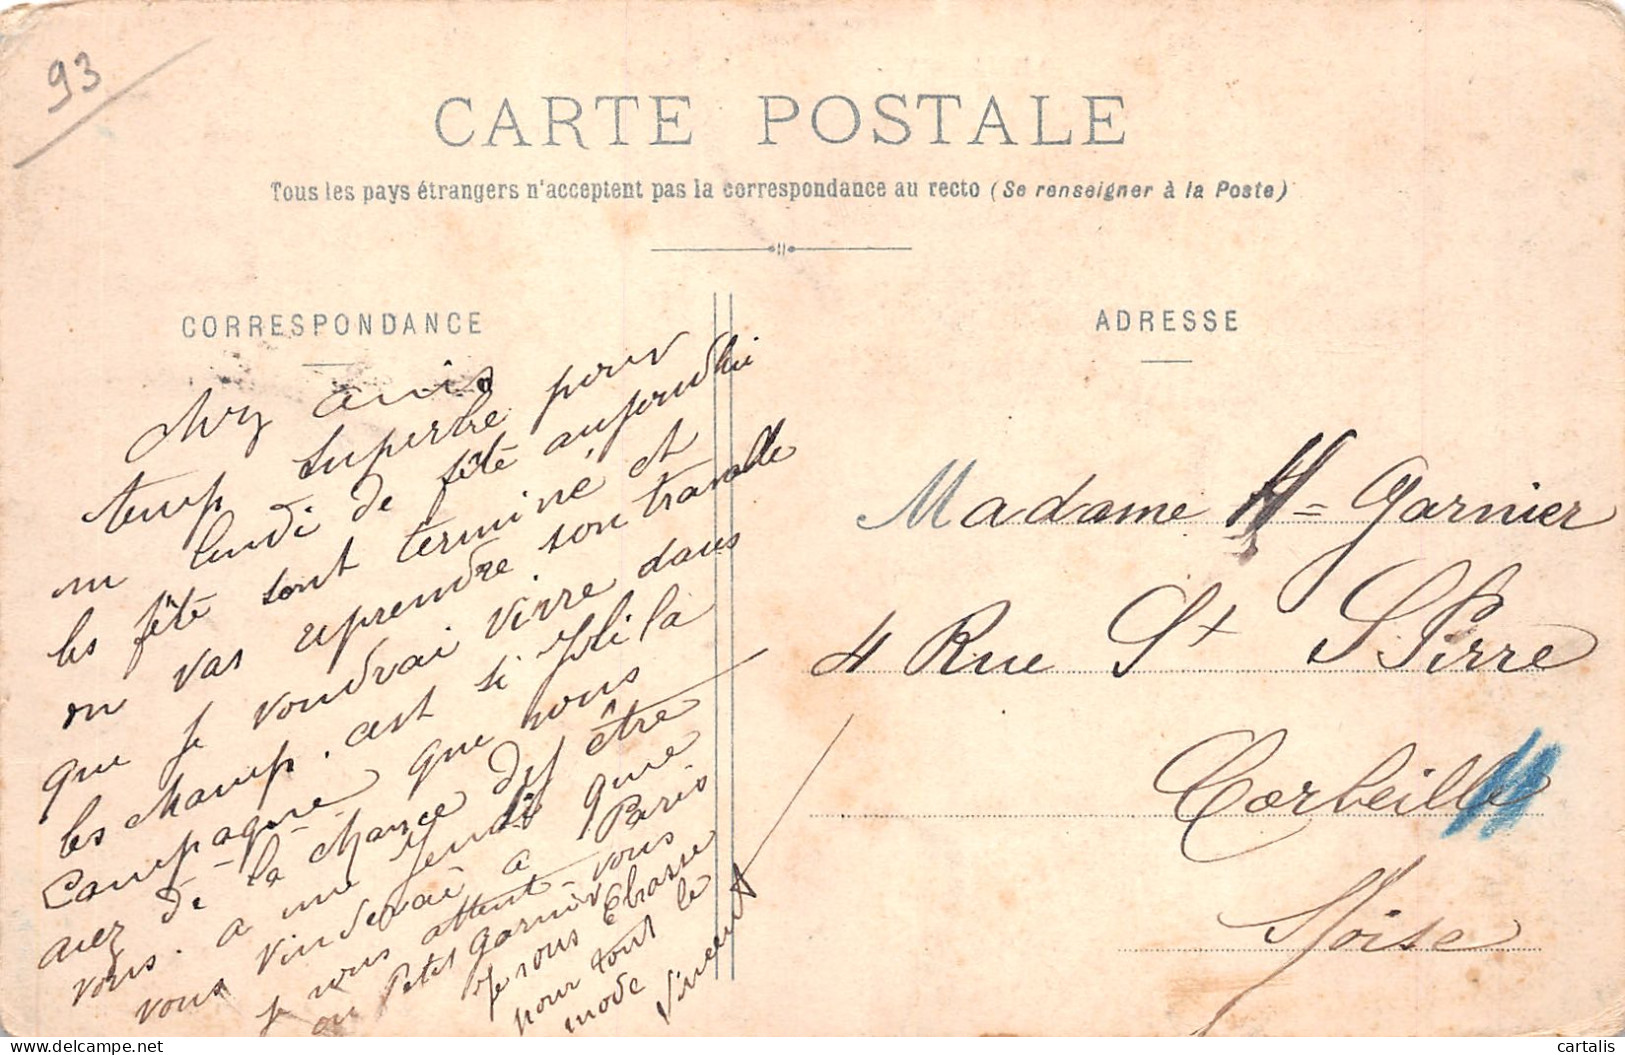 93
CARTE POSTALE
Tous les pays étrangers n'acceptent pas la correspondance au recto (Se renseigner à la Poste)
CORRESPONDANCE
cherz amis
temp superbe pour
un lundi de fêtè aujourdhui
les fêtè sont terminé et
on vas reprendre son travalle
que je voudrai vivre dans
les champ. est si joli la
Campagne que vous
aiez de la chance def être
vous. a une Jendi que
vous vinderai a Paris
je vous attent vous
ou Petit Garnier
Je vous Ebrasse
pour tout le
mode
Vincent
ADRESSE
Madame H= Garnier
4 Rue St SPirre
Corbeille
Soise
cartalis
delcampe.net